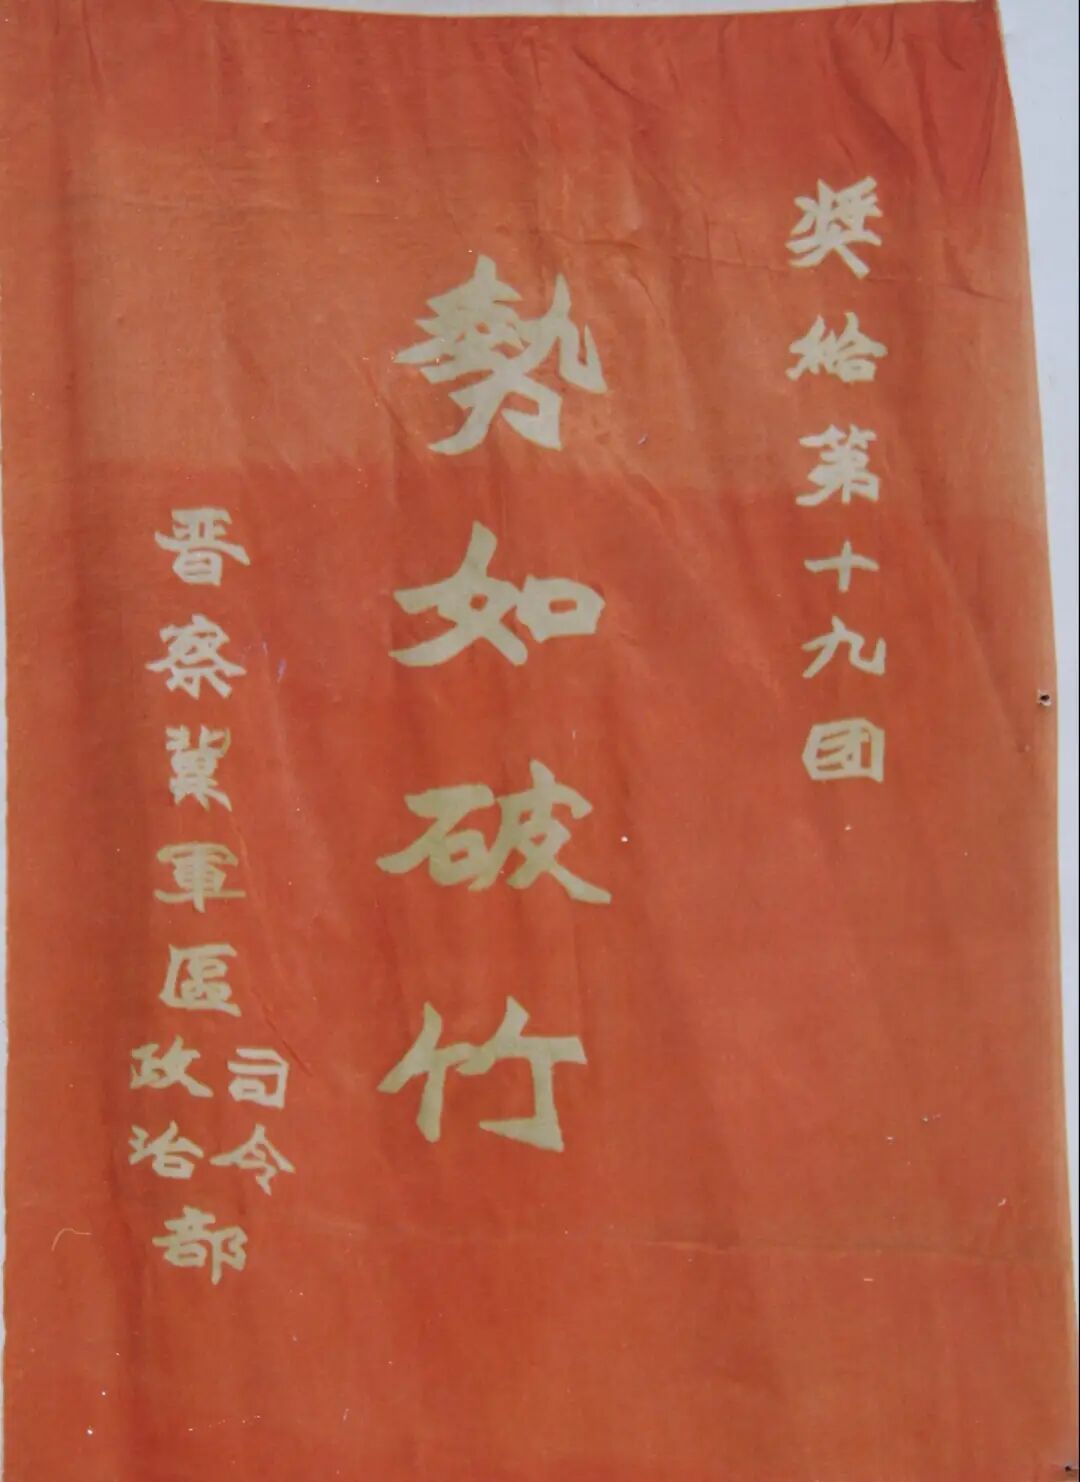 奖给第十九团
勢如破竹
晋察冀軍區司令政治部